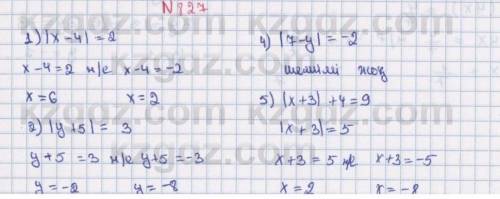 №827
1) |x-4| = 2
x-4=2 н/е x-4=-2
x=6 x=2
2) |y+5| = 3
y+5 = 3 н/е y+5=-3
y=-2 y=-8
4) |7-y| = -2
шешімі жоқ
5) |x+3| + 4 = 9
|x+3| = 5
x+3 = 5 н/е x+3=-5
x=2 x=-8